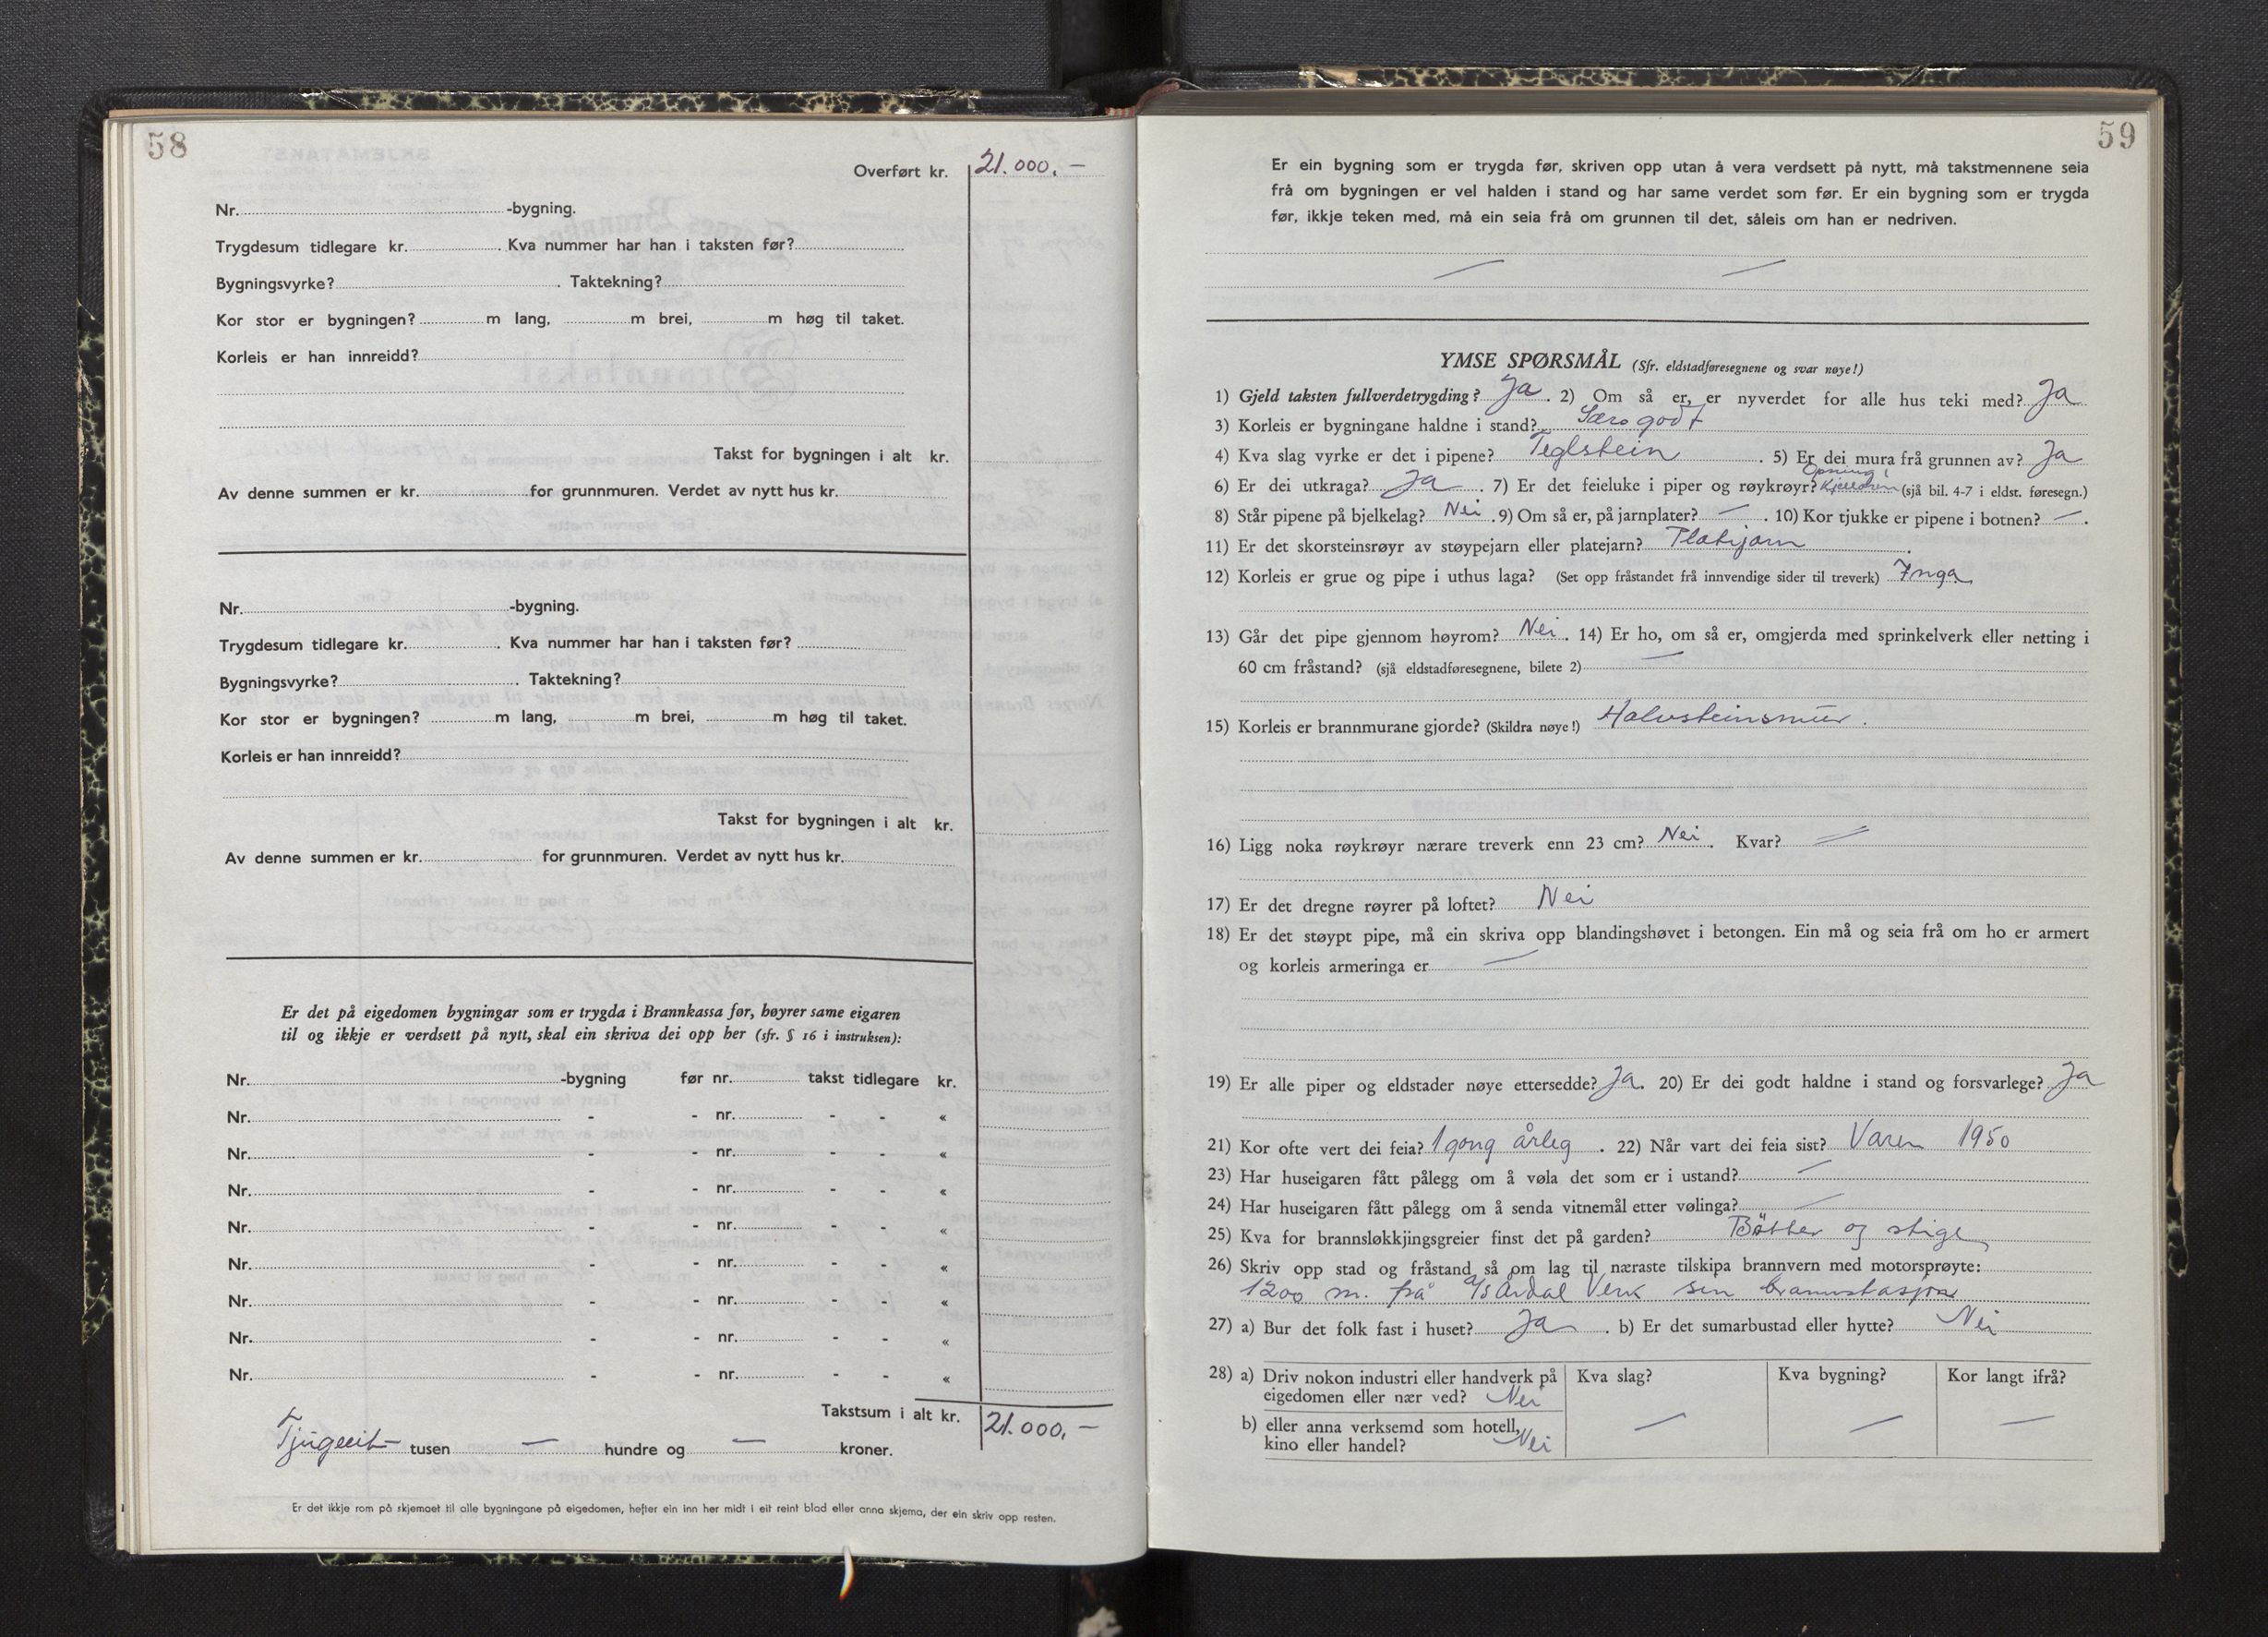 58
Overført kr. 21.000,-
Nr. -bygning.
Trygdesum tidlegare kr. . Kva nummer har han i taksten før?
Bygningsvyrke? . Taktekning?
Kor stor er bygningen? m lang, m brei, m høg til taket.
Korleis er han innreidd?
Takst for bygningen i alt kr.
Av denne summen er kr. for grunnmuren. Verdet av nytt hus kr.
Nr. -bygning.
Trygdesum tidlegare kr. . Kva nummer har han i taksten før?
Bygningsvyrke? . Taktekning?
Kor stor er bygningen? m lang, m brei, m høg til taket.
Korleis er han innreidd?
Takst for bygningen i alt kr.
Av denne summen er kr. for grunnmuren. Verdet av nytt hus kr.
Er det på eigedomen bygningar som er trygda i Brannkassa før, høyrer same eigaren
til og ikkje er verdsett på nytt, skal ein skriva dei opp her (sfr. § 16 i instruksen):
Nr. -bygning før nr. takst tidlegare kr.
Nr. - - nr. - - «
Nr. - - nr. - - «
Nr. - - nr. - - «
Nr. - - nr. - - «
Nr. - - nr. - - «
Nr. - - nr. - - «
Nr. - - nr. - - «
Nr. - - nr. - - «
Takstsum i alt kr. 21.000,-
Tjugeeit tusen — hundre og — kroner.
Er det ikkje rom på skjemaet til alle bygningane på eigedomen, hefter ein inn her midt i eit reint blad eller anna skjema, der ein skriv opp resten.
59
Er ein bygning som er trygda før, skriven opp utan å vera verdsett på nytt, må takstmennene seia
frå om bygningen er vel halden i stand og har same verdet som før. Er ein bygning som er trygda
før, ikkje teken med, må ein seia frå om grunnen til det, såleis om han er nedriven.
— —
YMSE SPØRSMÅL (Sfr. eldstadføresegnene og svar nøye!)
1) Gjeld taksten fullverdetrygding? Ja . 2) Om så er, er nyverdet for alle hus teki med? Ja
3) Korleis er bygningane haldne i stand? Særs godt
4) Kva slag vyrke er det i pipene? Teglstein . 5) Er dei mura frå grunnen av? Ja
6) Er dei utkraga? Ja . 7) Er det feieluke i piper og røykrøyr? Opning i Kjellaren (sjå bil. 4-7 i eldst. føresegn.)
8) Står pipene på bjelkelag? Nei . 9) Om så er, på jarnplater? — . 10) Kor tjukke er pipene i botnen? — .
11) Er det skorsteinsrøyr av støypejarn eller platejarn? Platejarn .
12) Korleis er grue og pipe i uthus laga? (Set opp fråstandet frå innvendige sider til treverk) Inga
13) Går det pipe gjennom høyrom? Nei . 14) Er ho, om så er, omgjerda med sprinkelverk eller netting i
60 cm fråstand? (sjå eldstadføresegnene, bilete 2) —
15) Korleis er brannmurane gjorde? (Skildra nøye!) Halvsteinsmur .
16) Ligg noka røykrøyr nærare treverk enn 23 cm? Nei . Kvar? —
17) Er det dregne røyrer på loftet? Nei
18) Er det støypt pipe, må ein skriva opp blandingshøvet i betongen. Ein må og seia frå om ho er armert
og korleis armeringa er —
19) Er alle piper og eldstader nøye ettersedde? Ja. 20) Er dei godt haldne i stand og forsvarlege? Ja
21) Kor ofte vert dei feia? 1 gong årleg . 22) Når vart dei feia sist? Varen 1950
23) Har huseigaren fått pålegg om å vøla det som er i ustand? —
24) Har huseigaren fått pålegg om å senda vitnemål etter vølinga? —
25) Kva for brannsløkkjingsgreier finst det på garden? Bøtter og stige
26) Skriv opp stad og fråstand så om lag til næraste tilskipa brannvern med motorsprøyte:
1200 m. frå A/S Årdal Verk sin brannstasjon
27) a) Bur det folk fast i huset? Ja . b) Er det sumarbustad eller hytte? Nei
28) a) Driv nokon industri eller handverk på Kva slag? Kva bygning? Kor langt ifrå?
eigedomen eller nær ved? Nei
b) eller anna verksemd som hotell, — — —
kino eller handel? Nei